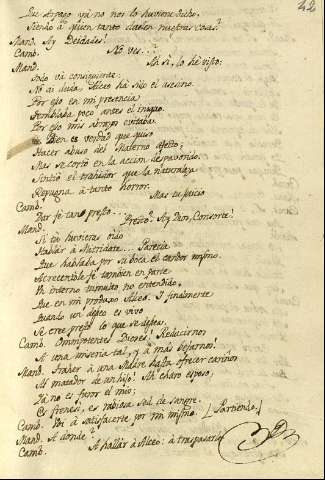 42
Que Arpago yá no nos lo huviera dicho,
Siendo à quien tanto deben nuestras cosas?
Mand. Ay Deidades!
Camb. No ves...?
Mand. Ah sì, lo hè visto:
Todo và consiguiente.
No ai duda, Alceo hà sido el asesino.
Por eso en mi presencia
Temblaba poco antes el iniquo.
Por eso mis abrazos evitaba.
Bien es verdad que quiso
Hacer abuso del Materno afecto;
Mas se cortò en la accion despavorido.
Sintiò el trahidor que la naturaleza
Repugna à tanto horror.
Camb. Mas tu juicio
Dar fè tan presto...
Mand. Presto? Ay Dios, Consorte!
Si tù huvieras oido
Hablar à Mitridate... Parecia
Que hablaba por su boca el candor mismo.
Acrecentole fè tambien en parte
Un interno tumulto no entendido,
Que en mi produxo Alceo. I finalmente
Quando un deseo es vivo
Se cree presto lo que se desea.
Camb. Omnipotentes Dioses! Reducirnos
A una miseria tal, y à mas befarnos!
Mand. Traher à una Madre hasta ofrecer cariños
Al matador de un hijo! Ah charo esposo,
Yà no es furor el mio;
Es frenesì, es rabiosa sed de sangre.
Camb. Voi à satisfacerte por mi mismo. [Partiendo.]
Mand. A donde?
Camb. A hallàr à Alceo: à traspasarle